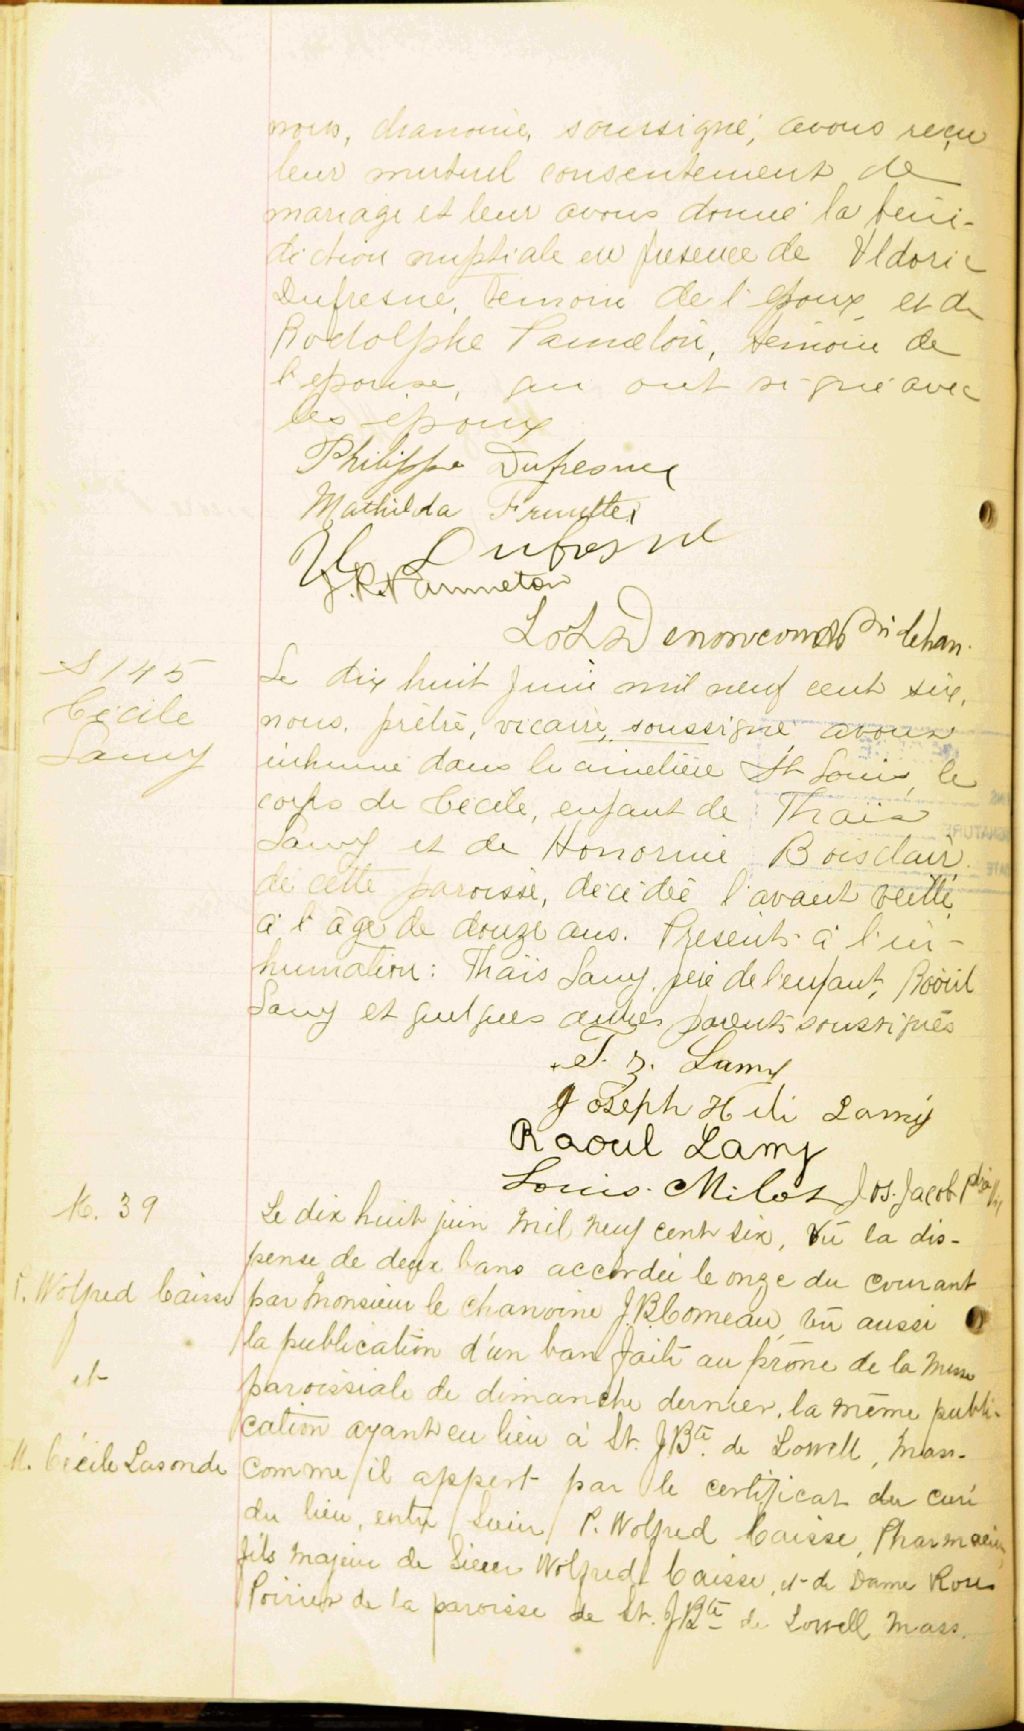 nous, chanoine, soussigné, avons reçu
leur mutuel consentement de
mariage et leur avons donné la béné-
diction nuptiale en presence de Uldoric
Dufresne, temoin de l'epoux et de
Rodolphe Panneton, témoin de
l'epouse, qui ont signé avec
les époux
Philippe Dufresne
Mathilda
U. Dufresne
J. R. Panneton
Denoncourt
S 145
Cécile
Lamy
Le dix huit Juin mil neuf cent six,
nous, prêtre, vicaire, soussigné avons
inhumé dans le cimetière St Louis, le
corps de Cécile, enfant de Thaïs
Lamy et de Honorine Boisclair
de cette paroisse, décédée l'avant veille
à l'âge de douze ans. Presents à l'in-
humation: Thaïs Lamy, père de l'enfant, Raoul
Lamy et quelques autres parents soussignés
T. Z. Lamy
Joseph Heli Lamy
Raoul Lamy
Louis Milot Jos. Jacob Ptre
M. 39
P. Wolfred Caisse
et
M. Cécile Lasonde
Le dix huit juin mil neuf cent six, Vû la dis-
pense de deux bans accordée le onze du courant
par Monsieur le chanoine J.B. Comeau, vû aussi
la publication d'un ban faite au prône de la Messe
paroissiale de dimanche dernier, la même publi-
cation ayant eu lieu à St. J Bte de Lowell, Mass.
comme il appert par le certificat du curé
du lieu, entre Sieur P. Wolfred Caisse, Pharmacien
fils majeur de Sieur Wolfred Caisse, et de Dame Rose
Poirier de la paroisse de St. J Bte de Lowell Mass.